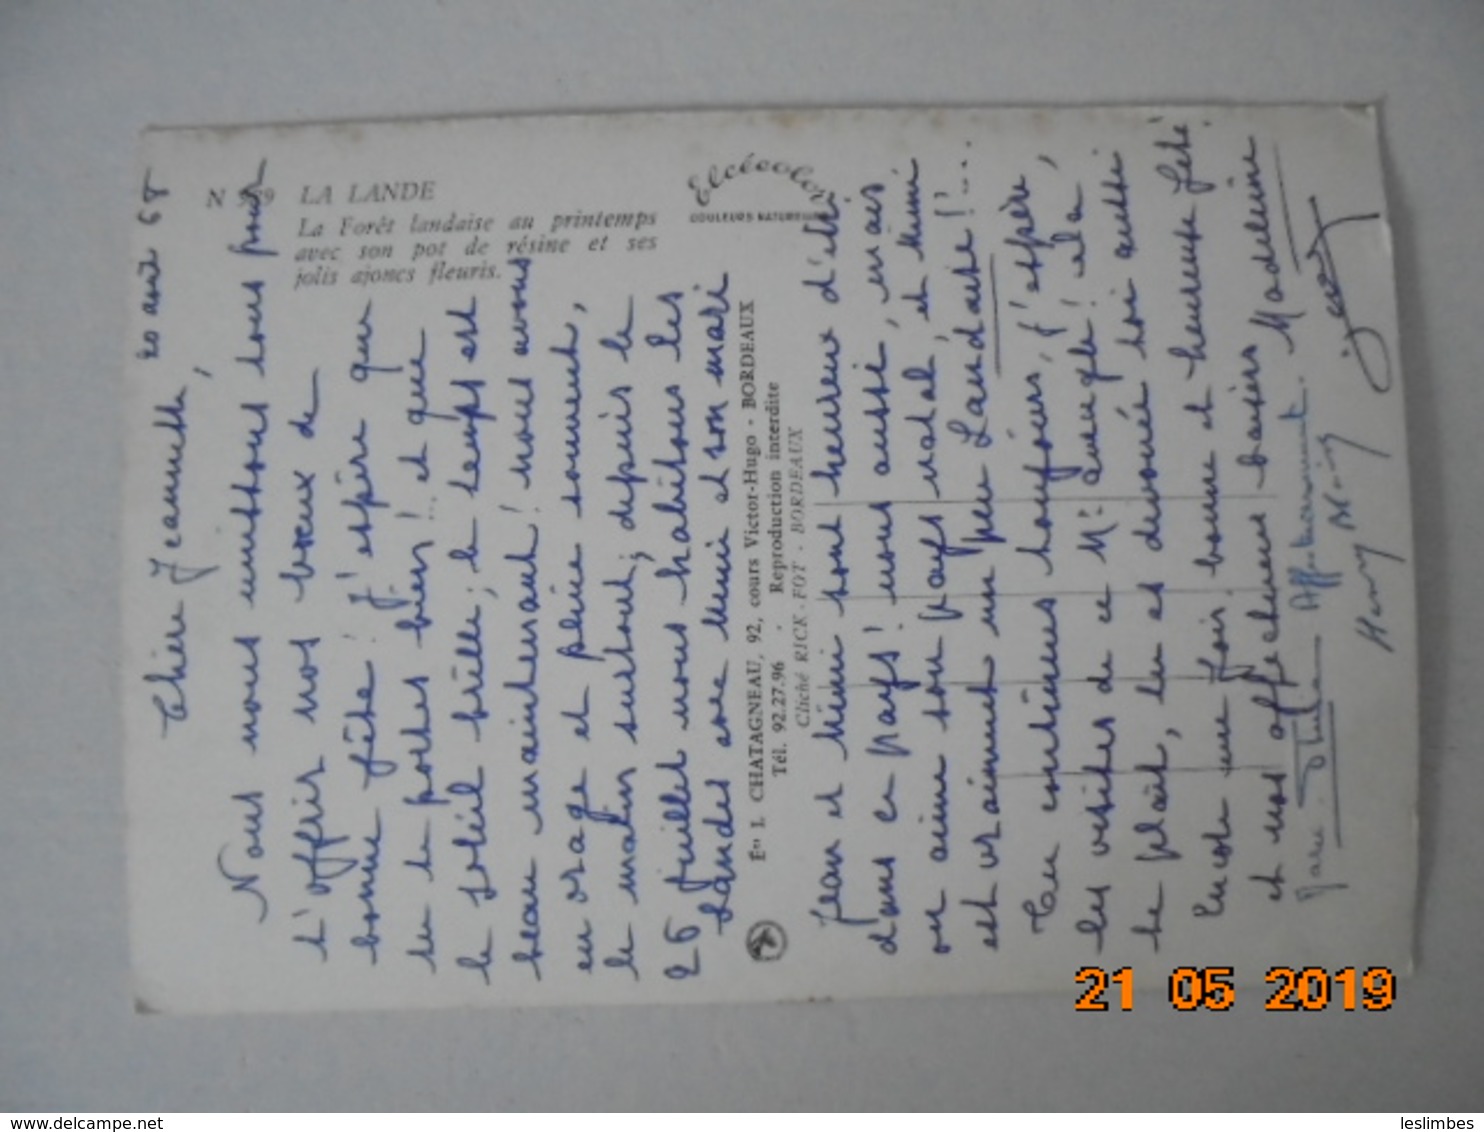 N
LA LANDE
La Forêt landaise au printemps
avec son pot de résine et ses
jolis ajoncs fleuris.
Elcécolor
COULEURS NATURELLES
Ets I. CHATAGNEAU, 92, cours Victor-Hugo - BORDEAUX
Tél. 92.27.96 - Reproduction interdite
Cliché RICK-FOT - BORDEAUX
20 août 68
Chère Jeannette,
Nous nous unissons tous pour
t'offrir nos vœux de
bonne fête! j'espère que
tu te portes bien!... et que
le soleil brille; le temps est
beau maintenant! nous avons
eu orage et pluie souvent,
le matin surtout; depuis le
26 juillet nous habitons les
Landes avec Mimi et son mari
Jean et Mimi sont heureux d'être
dans ce pays! nous aussi, mais
on aime son pays natal, et Mimi
est vraiment un peu Landaise!...
Tu continues toujours, j'espère,
les visites de ce Mr aveugle! cela
te plaît, tu es dévouée toi aussi
Encore une fois, bonne et heureuse fête!
et nos affectueux baisers Madeleine
Affectueusement.
Henry
21 05 2019
leslimbes